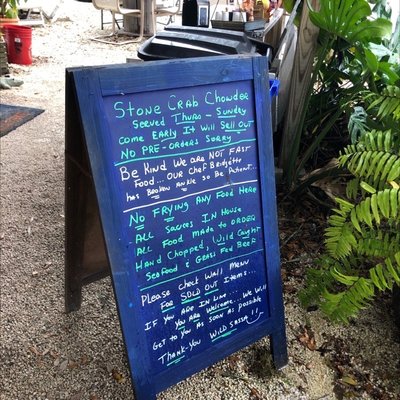 Stone Crab Chowder
Served Thurs - Sunday
come Early It Will Sell Out
No Pre-Orders Sorry
Be Kind We are NOT FAST
Food... Our Chef Bridgette
has Broken Ankle so Be Patient.
No Frying Any Food Here
All Sauces In House
All Food Made to Order
Hand Chopped, Wild Caught
Seafood & Grass Fed Beef
Please Check Wall Menu
For Sold Out Items
If You Are In Line...
You Are Welcome... We Will
Get to You As Soon As Possible
Thank-You Wild Salsa!!